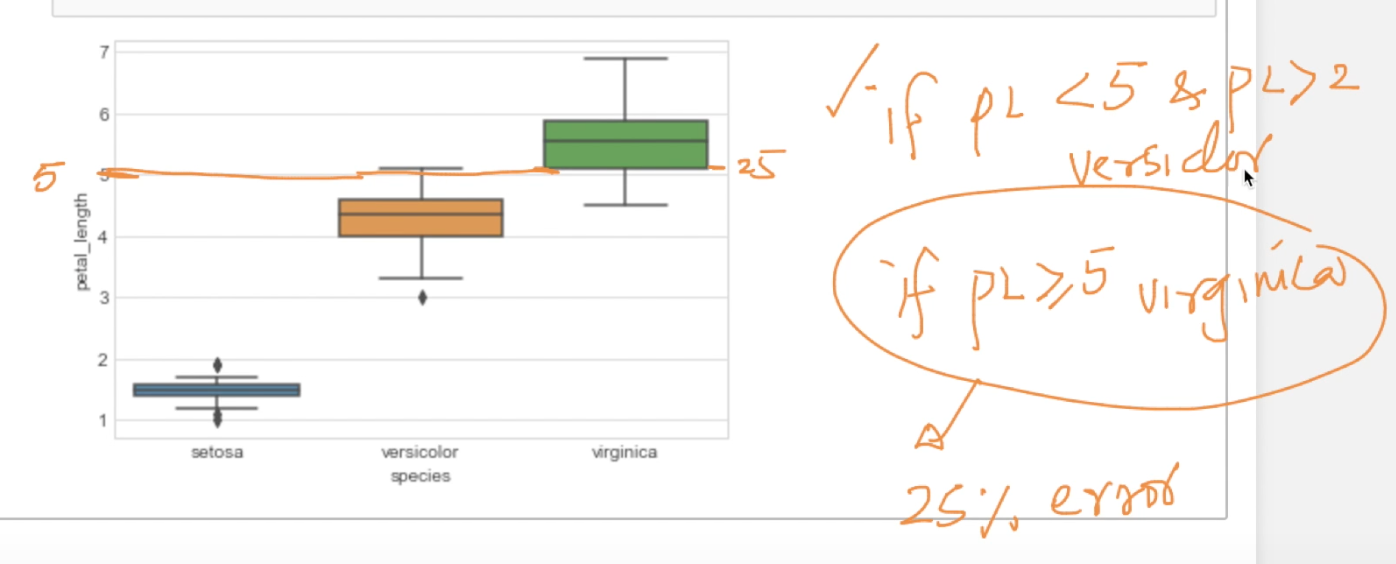 7
6
5
4
3
2
1
petal_length
setosa
versicolor
virginica
species
5
25
if PL <5 & PL>2
versiclor
if PL≥5 virginica
25% error